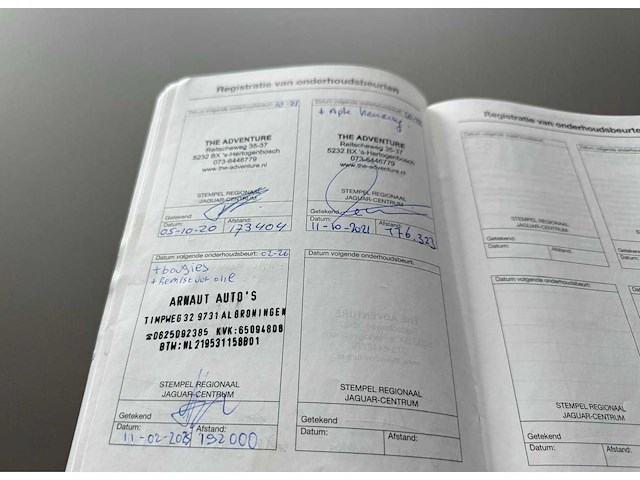 Registratie van onderhoudsbeurten
Datum volgende onderhoudsbeurt: 10-21
THE ADVENTURE
Reitscheweg 35-37
5232 BX 's-Hertogenbosch
073-6446779
www.the-adventure.nl
STEMPEL REGIONAAL
JAGUAR-CENTRUM
Getekend
Datum: Afstand:
05-10-20 173404
Datum volgende onderhoudsbeurt:
+ Apk keuring.
THE ADVENTURE
Reitscheweg 35-37
5232 BX 's-Hertogenbosch
073-6446779
www.the-adventure.nl
STEMPEL REGIONAAL
JAGUAR-CENTRUM
Getekend
Datum: Afstand:
11-10-2021 176.323
Datum volgende onderhoudsbeurt: 02-26
+ bougies
+ Rem/stuur olie
ARNAUT AUTO'S
TIMPWEG 32 9731 AL GRONINGEN
☎0625092385 KVK:65094808
BTW:NL219531158B01
STEMPEL REGIONAAL
JAGUAR-CENTRUM
Getekend
Datum: Afstand:
11-02-2025 192000
Datum volgende onderhoudsbeurt:
STEMPEL REGIONAAL
JAGUAR-CENTRUM
Getekend
Datum: Afstand:
Registratie van onderhoudsbeurt
Datum volgende onderhoudsbeurt:
STEMPEL REGIONAAL
JAGUAR-CENTRUM
Getekend
Datum: Afstand:
Datum volgende onderhoudsbeurt:
STEMPEL REGIONAAL
JAGUAR-CENTRUM
Getekend
Datum: Afstand: